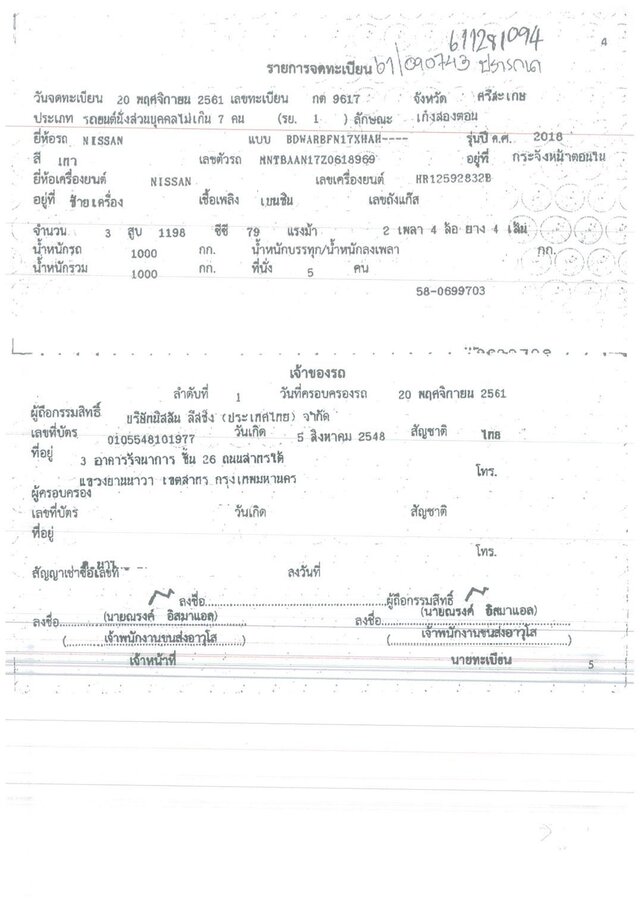 611281094
4
รายการจดทะเบียน 61/090743
วันจดทะเบียน 20 พฤศจิกายน 2561 เลขทะเบียน กต 9617 จังหวัด ศรีสะเกษ
ประเภท รถยนต์นั่งส่วนบุคคลไม่เกิน 7 คน (รย. 1 ) ลักษณะ เก๋งสองตอน
ยี่ห้อรถ NISSAN แบบ BDWARBFN17XHAH---- รุ่นปี ค.ศ. 2018
สี เทา เลขตัวรถ MNTBAAN17Z0618969 อยู่ที่ กระจังหน้าตอนใน
ยี่ห้อเครื่องยนต์ NISSAN เลขเครื่องยนต์ HR12592832B
อยู่ที่ ซ้ายเครื่อง เชื้อเพลิง เบนซิน เลขถังแก๊ส
จำนวน 3 สูบ 1198 ซีซี 79 แรงม้า 2 เพลา 4 ล้อ ยาง 4 เส้น
น้ำหนักรถ 1000 กก. น้ำหนักบรรทุก/น้ำหนักลงเพลา กก.
น้ำหนักรวม 1000 กก. ที่นั่ง 5 คน
58-0699703
เจ้าของรถ
ลำดับที่ 1 วันที่ครอบครองรถ 20 พฤศจิกายน 2561
ผู้ถือกรรมสิทธิ์ บริษัทนิสสัน ลีสซิ่ง (ประเทศไทย) จำกัด
เลขที่บัตร 0105548101977 วันเกิด 5 สิงหาคม 2548 สัญชาติ ไทย
ที่อยู่ 3 อาคารรัจนาการ ชั้น 26 ถนนสาทรใต้
แขวงยานนาวา เขตสาทร กรุงเทพมหานคร โทร.
ผู้ครอบครอง
เลขที่บัตร วันเกิด สัญชาติ
ที่อยู่
โทร.
สัญญาเช่าซื้อเลขที่ ลงวันที่
ลงชื่อ ผู้ถือกรรมสิทธิ์
ลงชื่อ (นายณรงค์ อิสมาแอล) ลงชื่อ (นายณรงค์ อิสมาแอล)
(เจ้าพนักงานขนส่งอาวุโส) (เจ้าพนักงานขนส่งอาวุโส)
เจ้าหน้าที่ นายทะเบียน 5